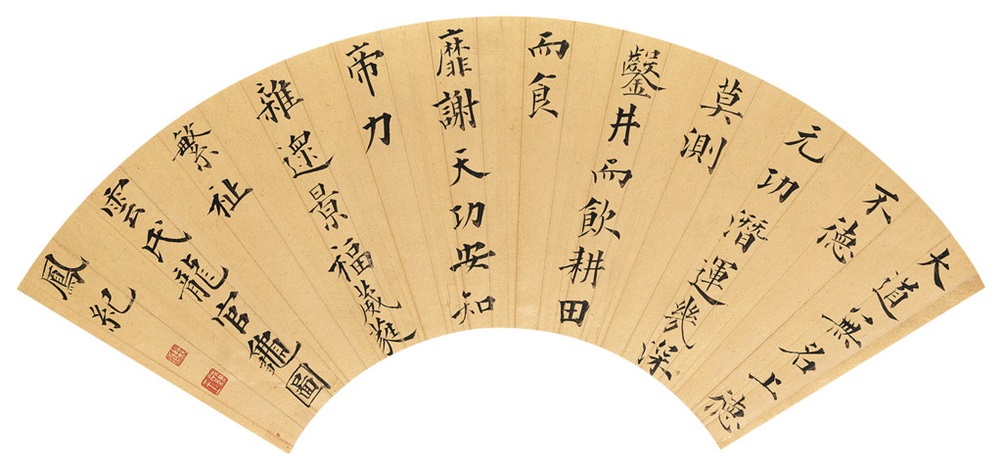 大道無名上德
不德
元功潛運幾深
莫測
鑿井而飲耕田
而食
靡謝天功安知
帝力
雜遝景福葳蕤
繁祉
雲氏龍官龜圖
鳳紀